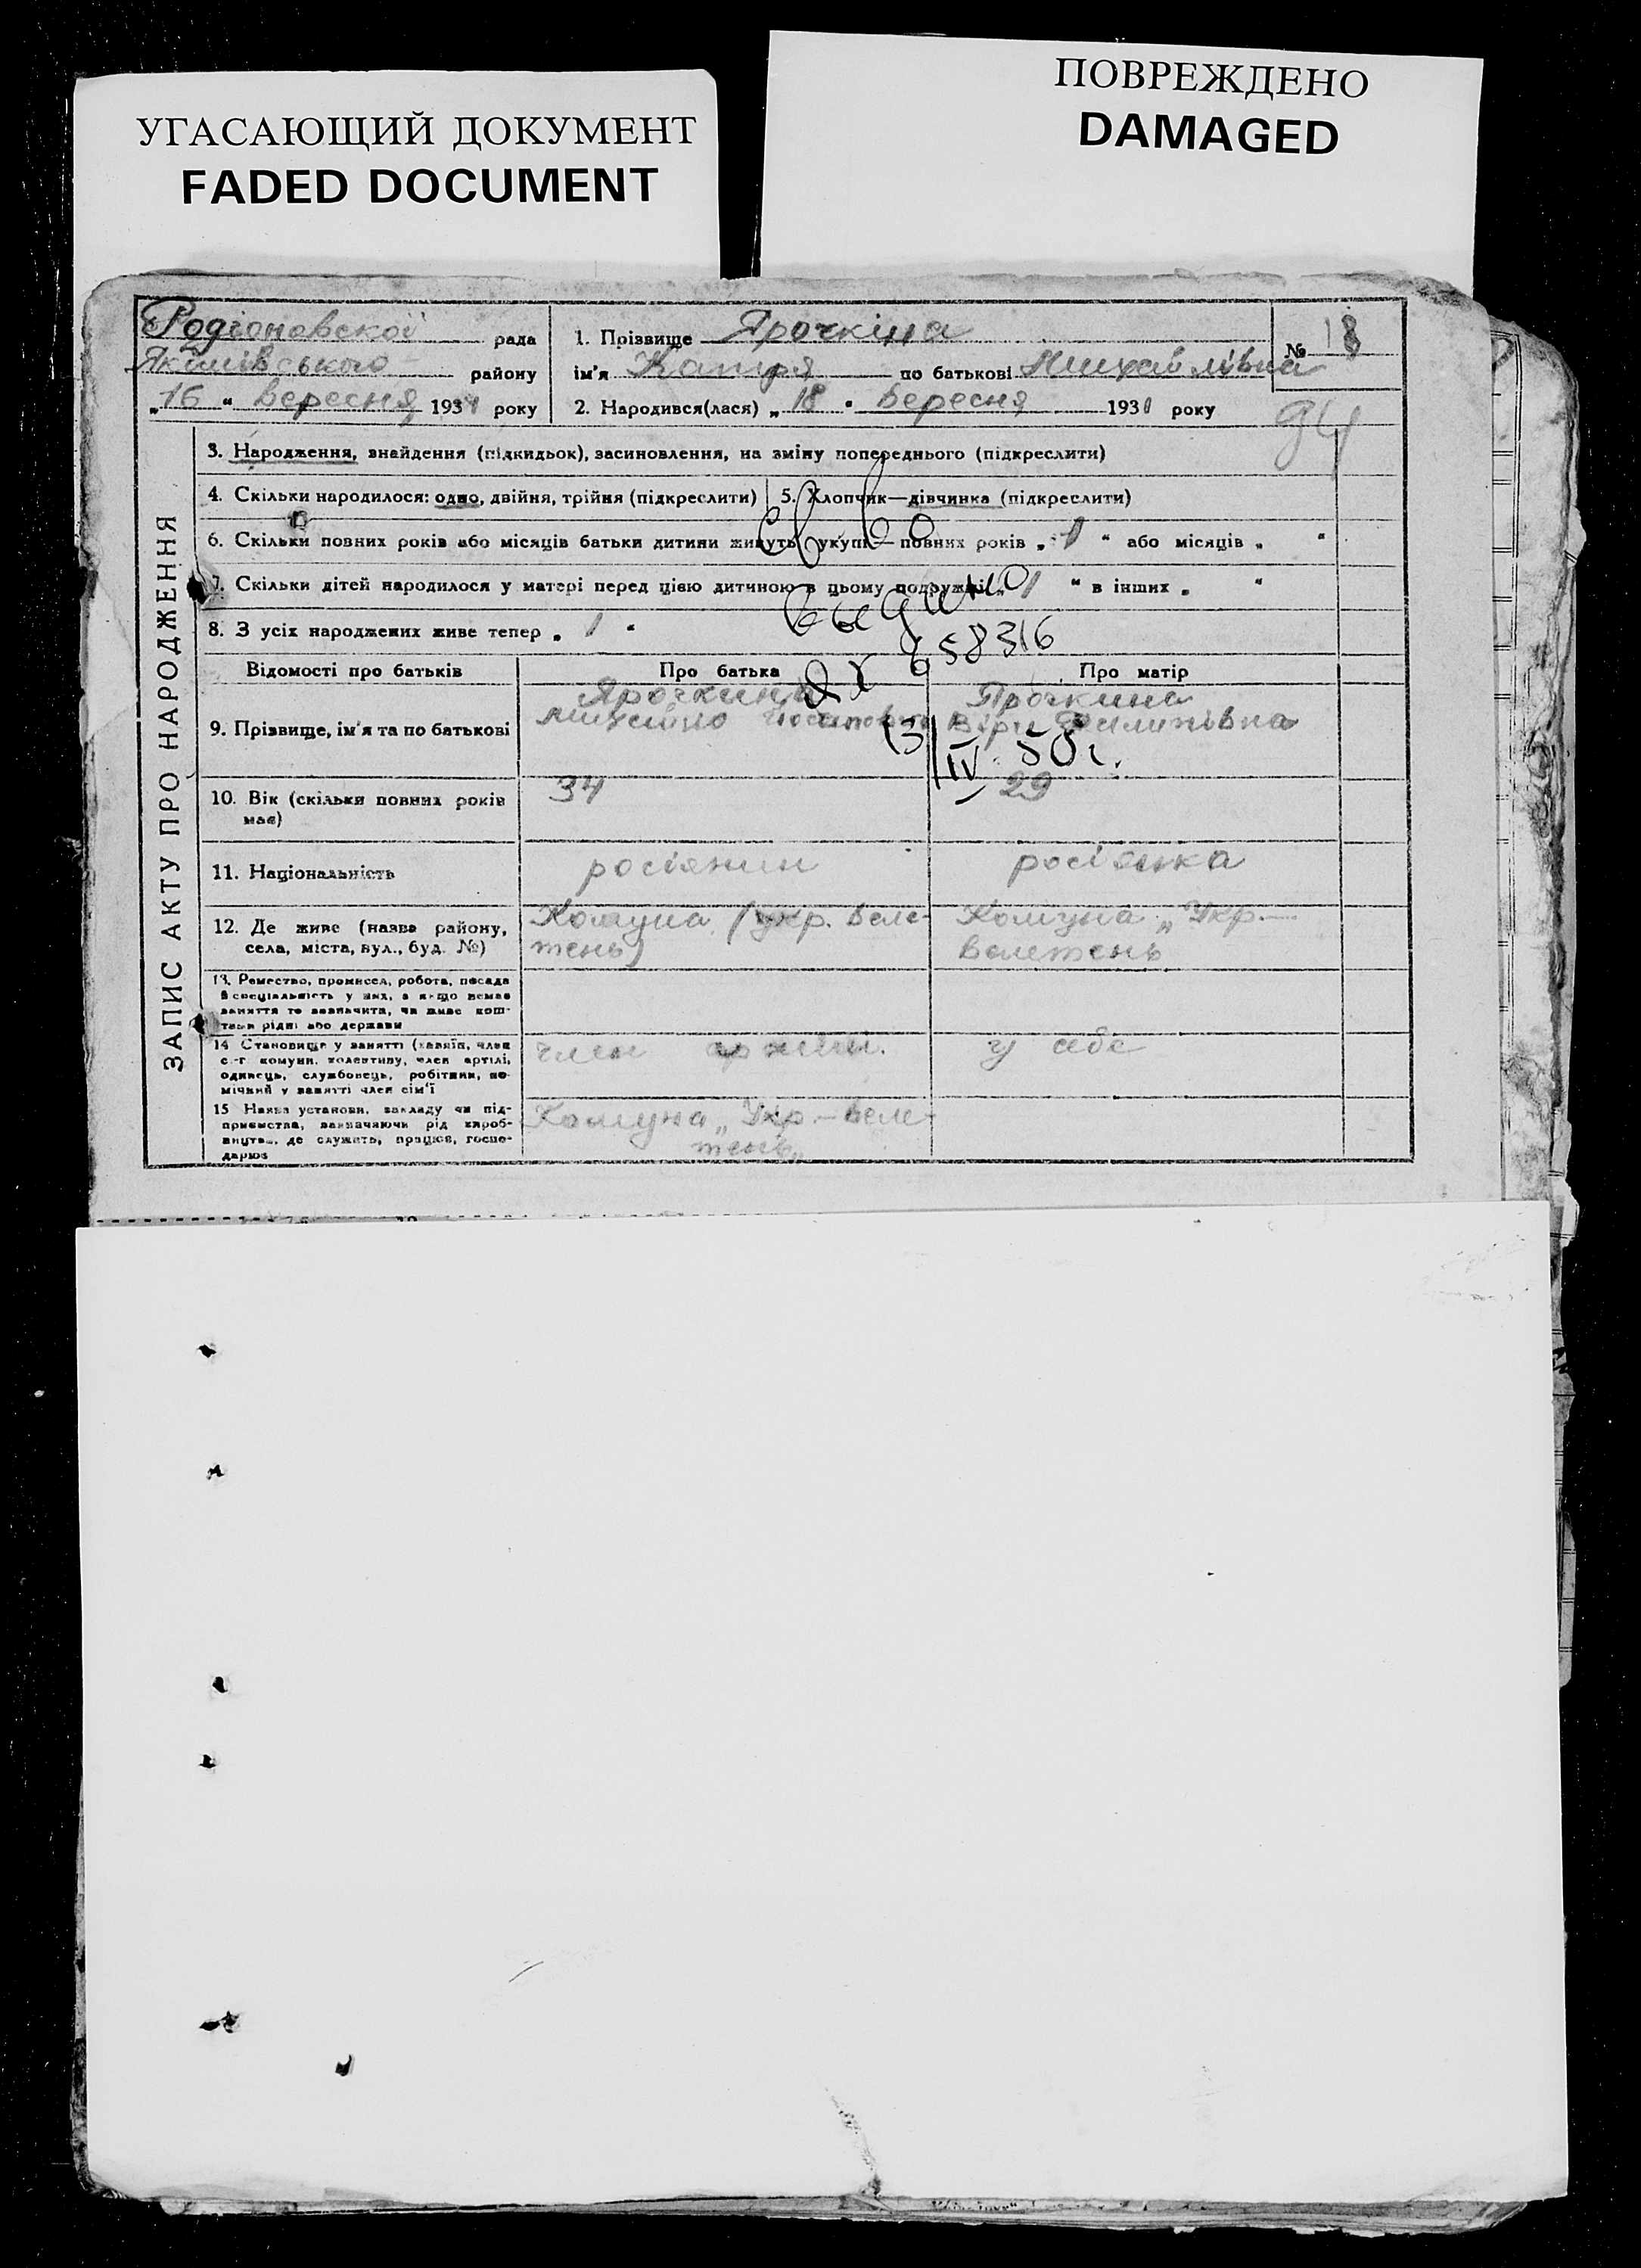 УГАСАЮЩИЙ ДОКУМЕНТ
FADED DOCUMENT
ПОВРЕЖДЕНО
DAMAGED
Родіоновской рада
Якимівського району
„16“ Вересня 193 року
1. Прізвище Ярочкіна
ім'я Катря по батькові Михайлівна
№ 18
2. Народився(лася) „18“ Вересня 193 року
94
ЗАПИС АКТУ ПРО НАРОДЖЕННЯ
3. Народження, знайдення (підкидьок), засиновлення, на зміну попереднього (підкреслити)
4. Скільки народилося: одно, двійня, трійня (підкреслити)
5. Хлопчик—дівчинка (підкреслити)
6. Скільки повних років або місяців батьки дитини живуть укупі— повних років „ “ або місяців „ “
7. Скільки дітей народилося у матері перед цією дитиною—в цьому подружжі „1“ в інших „ “
8. З усіх народжених живе тепер „1“
Св во
выдано
658316
3/IV 50г.
Відомості про батьків
Про батька
Про матір
9. Прізвище, ім'я та по батькові
Ярочкин
Михайло
Ярочкина
Віра
10. Вік (скільки повних років має)
34
29
11. Національність
росіянин
росіянка
12. Де живе (назва району,
села, міста, вул., буд. №)
Комуна (укр. Веле-
тень)
Комуна „Укр.—
Велетень
13. Ремество, промисел, робота, посада
й спеціальність у них, а якщо немає
заняття то зазначити, чи живе кош-
тами рідні або держави
14 Становище у занятті (хазяїн, член
с.-г. комуни, колективу, член артілі,
одинець, службовець, робітник, по-
мічний у занятті член сім'ї
член
у себе
15 Назва установи, закладу чи під-
приємства, зазначаючи рід вироб-
ництва, де служить, працює, госпо-
дарює
Комуна „Укр.—Веле-
тень„